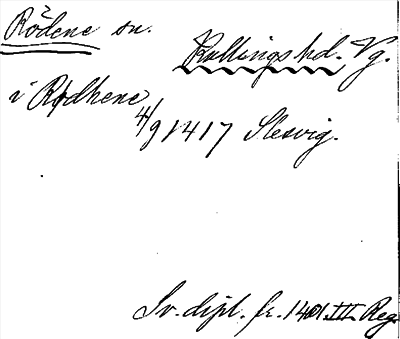 Rödene sn. Kullings hd. Vg.
i Rødhene
4/9 1417 Slesvig.
Sv. dipl. fr. 1401 III Reg.